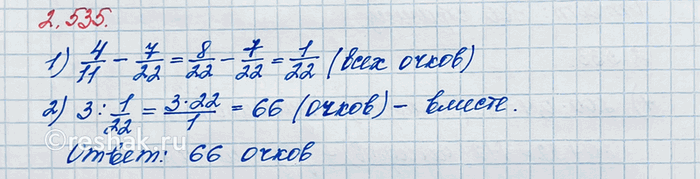 2.535.
1) 4/11 - 7/22 = 8/22 - 7/22 = 1/22 (всех очков)
2) 3 : 1/22 = 3·22/1 = 66 (очков) - вместе.
Ответ: 66 очков
reshak.ru